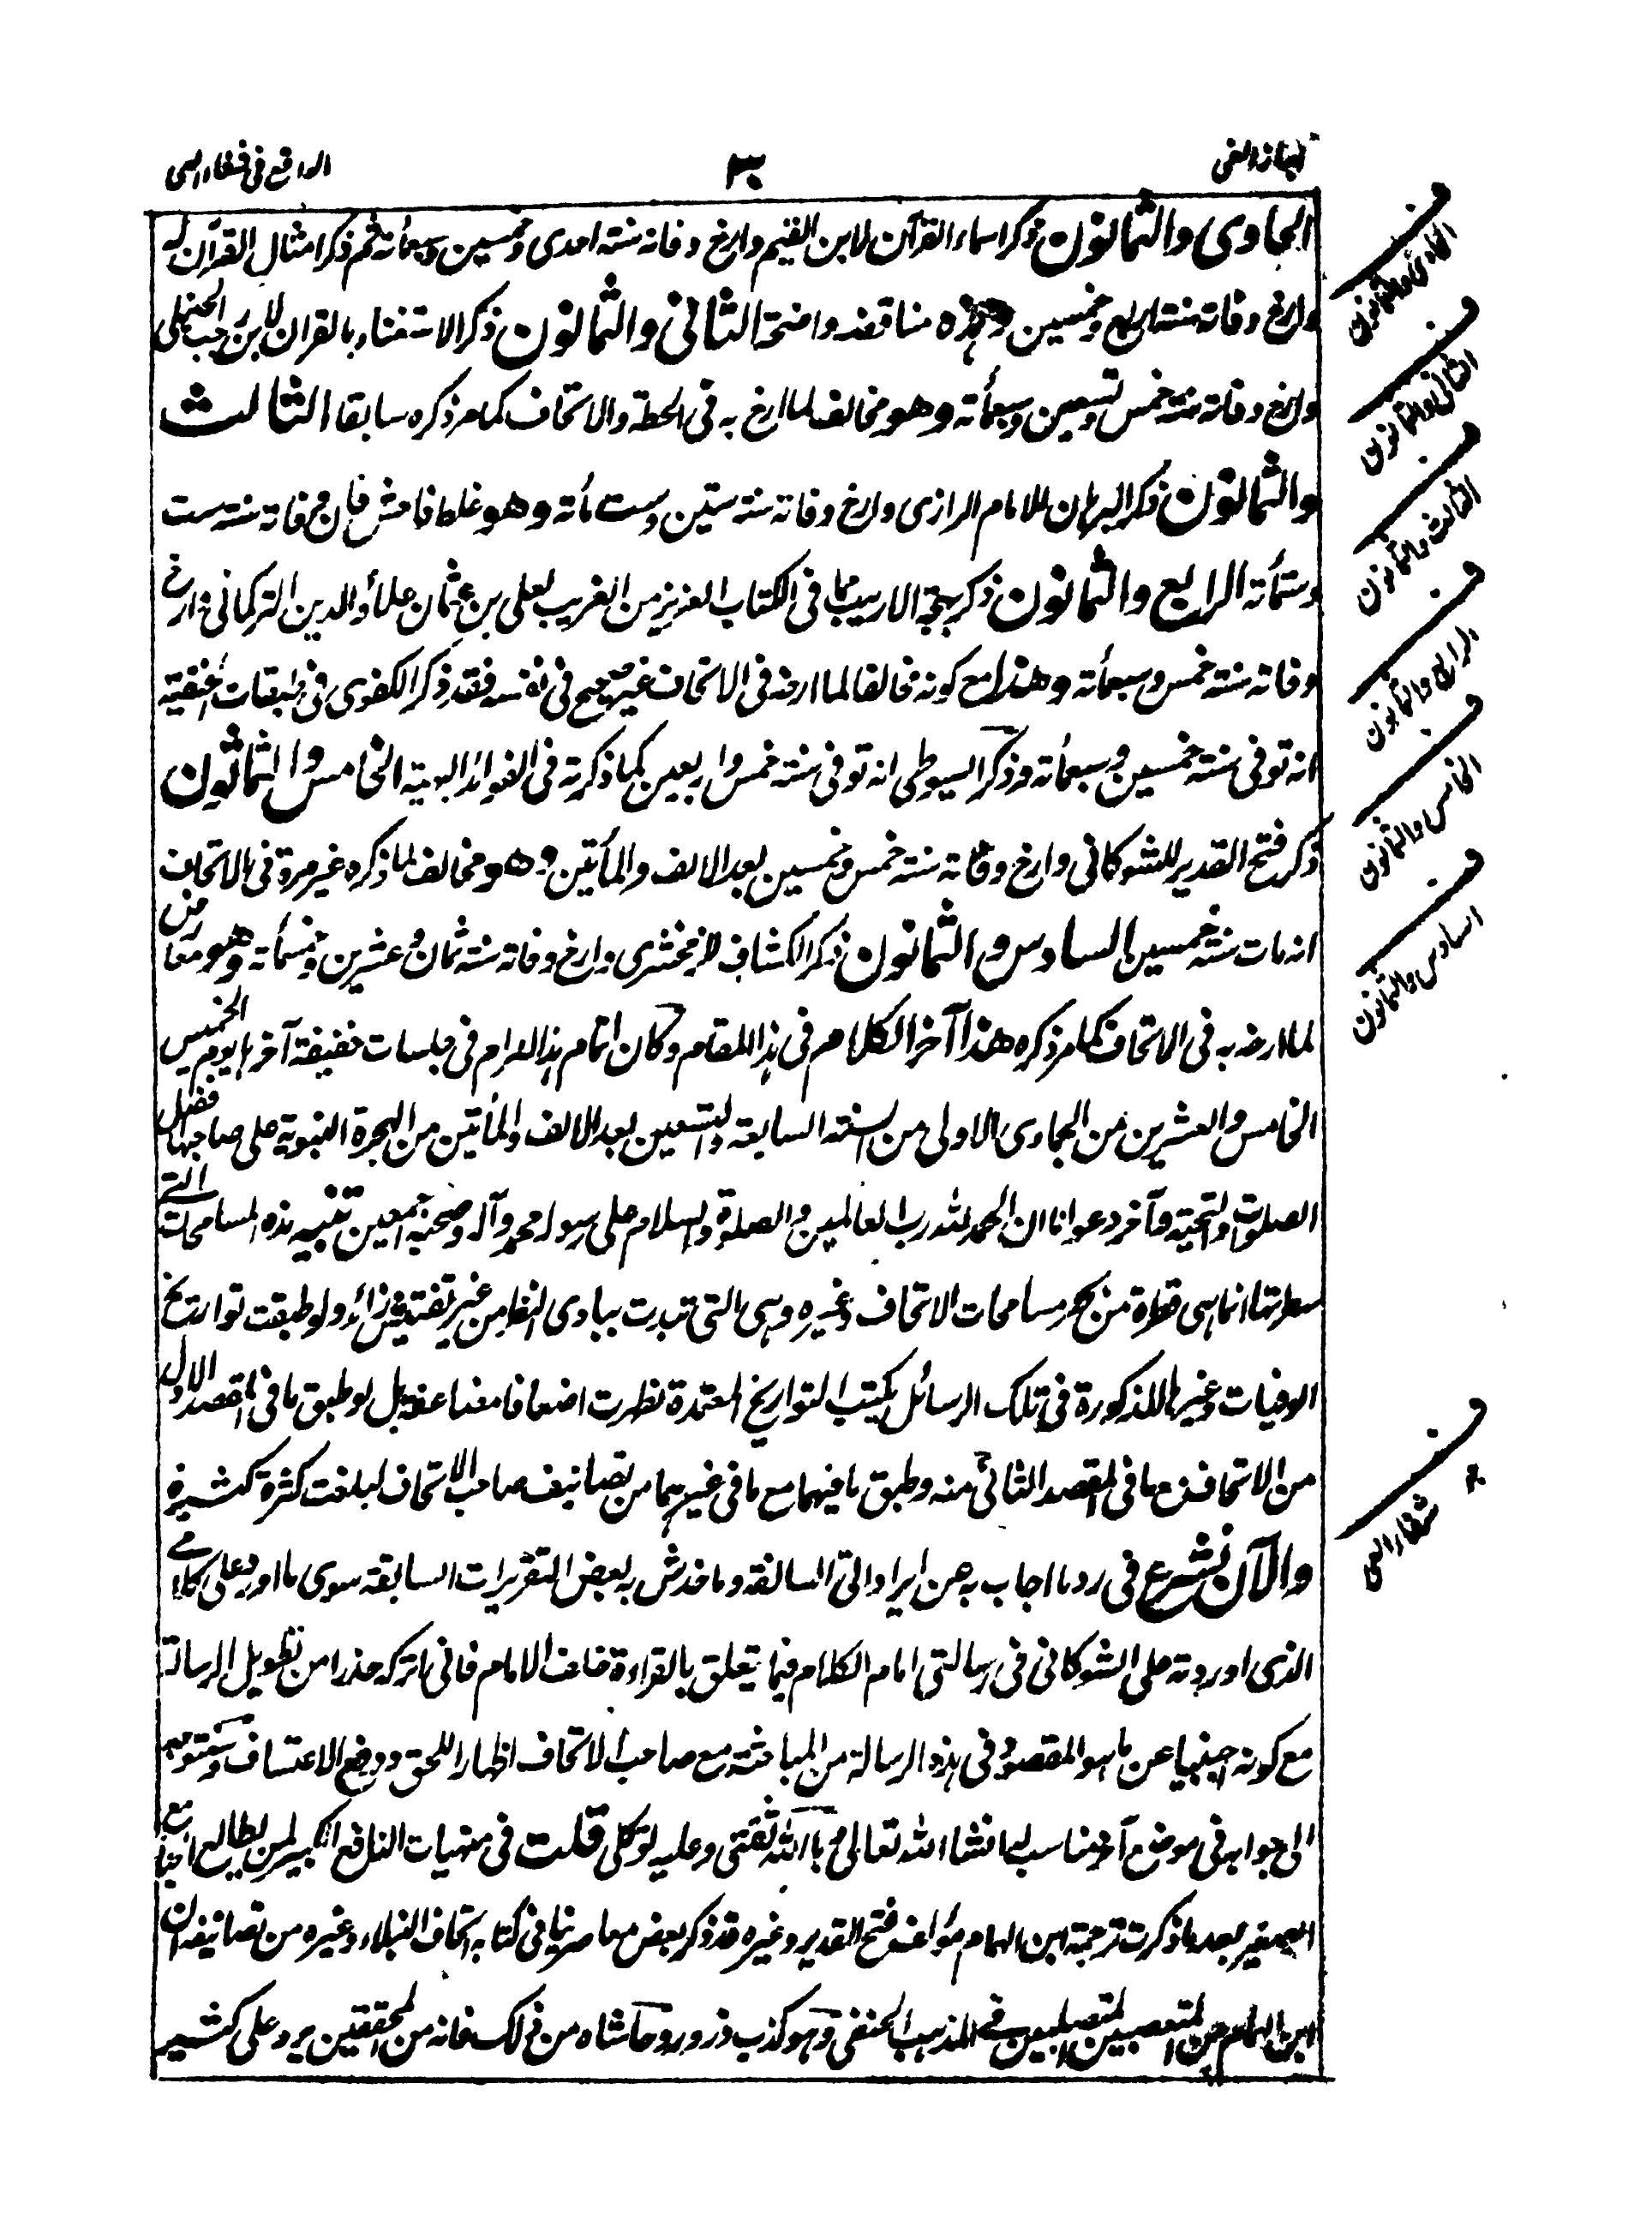 ابراز الغى
٣٠
الواقع فى شفاء العى
الحادى والثمانون ذكر اسماء القرآن لابن القيم وارخ وفاته سنته احدى وخمسين وسبعمأته ثم ذكر امثال القرآن له
وارخ وفاته سنته اربع وخمسين وهذه مناقضه واضحة الثانى والثمانون ذكر الاستغناء بالقرآن لابن رجب الحنبلى
وارخ وفاته سنته خمس وتسعين وسبعمأته وهو مخالف لما ارخ به فى الحطة والاتحاف كما مر ذكره سابقا الثالث
والثمانون ذكر البرهان للامام الرازى وارخ وفاته سنته ستين وست مأته وهو غلط فاحش فان وفاته سنته ست
وستمأته الرابع والثمانون ذكر بهجة الاريب بما فى الكتاب العزيز من الغريب لعلى بن عثمان علاؤ الدين التركمانى وارخ
وفاته سنته خمس وسبعمأته وهذا مع كونه مخالفا لما ارخه فى الاتحاف غير صحيح فى نفسه فقد ذكر الكفوى فى طبقات الحنفية
انه توفى سنته خمسين وسبعمأته وذكر السيوطى انه توفى سنته خمس واربعين كما ذكرته فى الفوائد البهية الخامس والثمانون
ذكر فتح القدير للشوكانى وارخ وفاته سنته خمس وخمسين بعد الالف والمأتين وهو مخالف لما ذكره غير مرة فى الاتحاف
انه مات سنته خمسين السادس والثمانون ذكر الكشاف للزمخشرى وارخ وفاته سنته ثمان وعشرين وخمسمأته وهو معارض
لما ارخه به فى الاتحاف كما مر ذكره هذا آخر الكلام فى هذا المقام وكان اتمام هذا المرام فى جلسات خفيفة آخرها يوم الخميس
الخامس والعشرين من الجمادى الاولى من السنة السابعة والتسعين بعد الالف والمأتين من الهجرة النبوية على صاحبها افضل
الصلوات والتحية وآخر دعوانا ان الحمد لله رب العالمين والصلوة والسلام على رسوله محمد وآله وصحبه اجمعين تنبيه هذه المسامحات التى
سطرتها انما هى قطرة من بحر مسامحات الاتحاف وغيره وهى التى تبدت ببادى النظر من غير تفتيش زائد ولو طبقت تواريخ
الوفيات وغيرها المذكورة فى تلك الرسائل بكتب التواريخ المعتمدة لظهرت اضعافا مضاعفة بل لو طبق ما فى المقصد الاول
من الاتحاف مع ما فى المقصد الثانى منه وطبق ما فيهما مع ما فى غيرهما من تصانيف صاحب الاتحاف لبلغت كثرة كثيرة
والآن نشرع فى رد ما اجاب به عن ايراداتى السالفة وما خدش به بعض التقريرات السابقة سوى ما اورد على كلامى
الذى اوردته على الشوكانى فى رسالتى امام الكلام فيما يتعلق بالقراءة خلف الامام فانى اتركه حذرا من تطويل الرسالة
مع كونه اجنبيا عن ما هو المقصود فى هذه الرسالة من المباحثة مع صاحب الاتحاف اظهارا للحق ودفع الاعتساف وسنتوجه
الى جوابه فى موضع آخر مناسب لها انشاء الله تعالى وبالله ثقتى وعليه توكلى قلت فى منهيات النافع الكبير لمن يطالع الجامع
الصغير بعد ما ذكرت ترجمة ابن الهمام مؤلف فتح القدير وغيره قد ذكر بعض معاصرينا فى كتابه اتحاف النبلاء وغيره من تصانيفه ان
ابن الهمام من المتعصبين المتصلبين فى المذهب الحنفى وهو كذب وزور وحاشاه من ذلك فانه من المحققين يرد على كثير
الحادى والثمانون
الثانى والثمانون
الثالث والثمانون
الرابع والثمانون
الخامس والثمانون
السادس والثمانون
شفاء العى